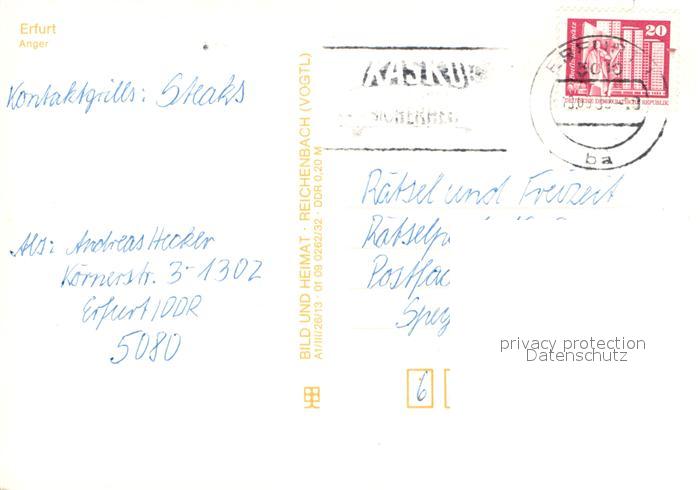 Erfurt
Anger
Kontaktgrills: Steaks
Abs: Andreas Hecker
Körnerstr. 3-1302
Erfurt/DDR
5080
BILD UND HEIMAT · REICHENBACH (VOGTL)
A1/III/26/13 · 01 09 0262/32 · DDR 0,20 M
20
DEUTSCHE DEMOKRATISCHE REPUBLIK
ba
Rätsel und Freizeit
6
privacy protection
Datenschutz